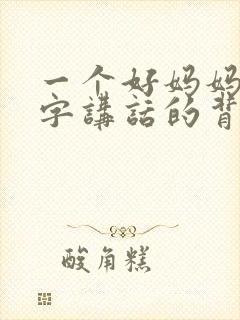 一个好妈妈
字講話的背
酸角糕